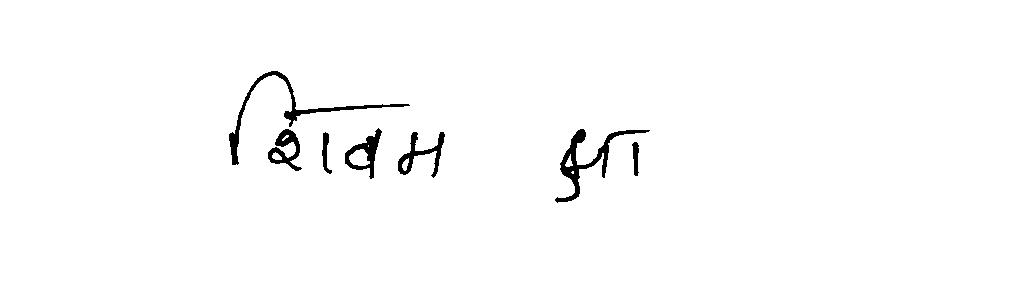 शिवम झा